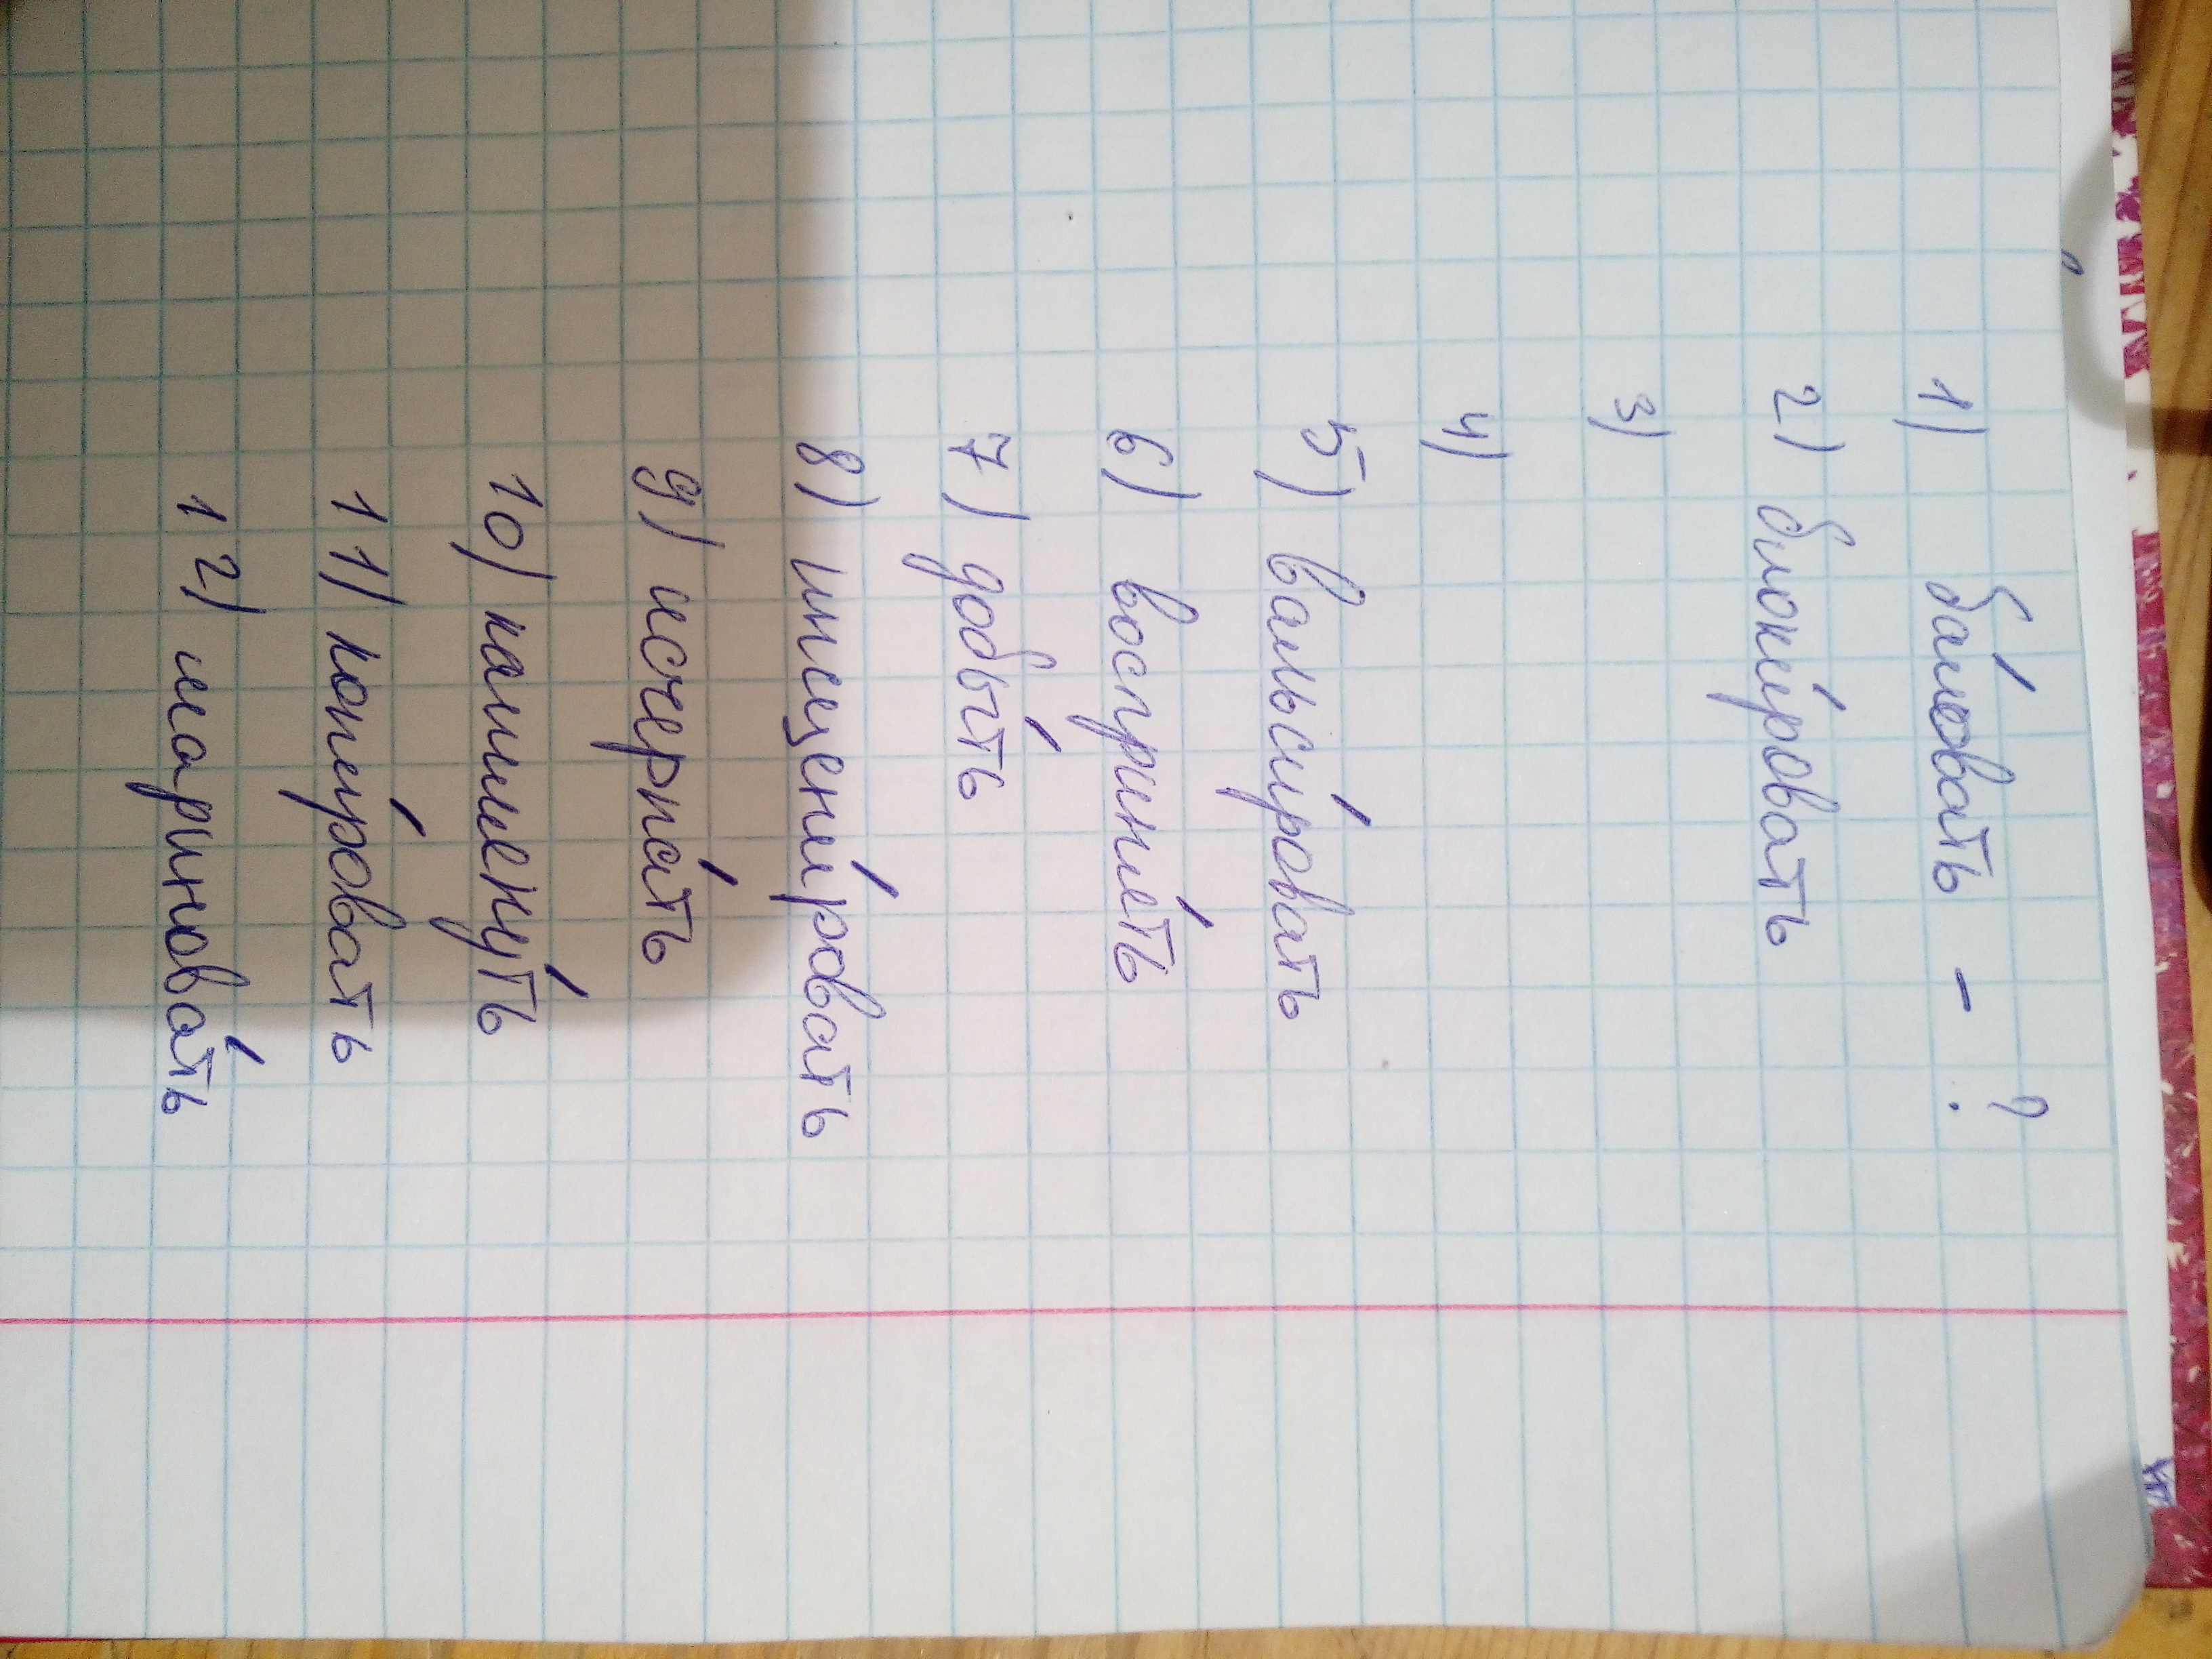 1) ба́ловать - ?
2) блоки́ровать
3)
4)
5) вальси́ровать
6) восприня́ть
7) добы́ть
8) инсцени́ровать
9) исче́рпа́ть
10) камену́ть
11) копи́ровать
12) маринова́ть